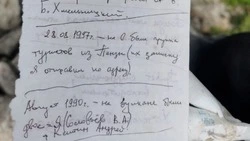 Б. Хмельницкий
28.08.1987г. – на О был группа
туристов из Пензы (их записку
я отправил по адресу)
Август 1990г. – на вулкане были
двое – я (Соловьёв В.А)
и Андрей